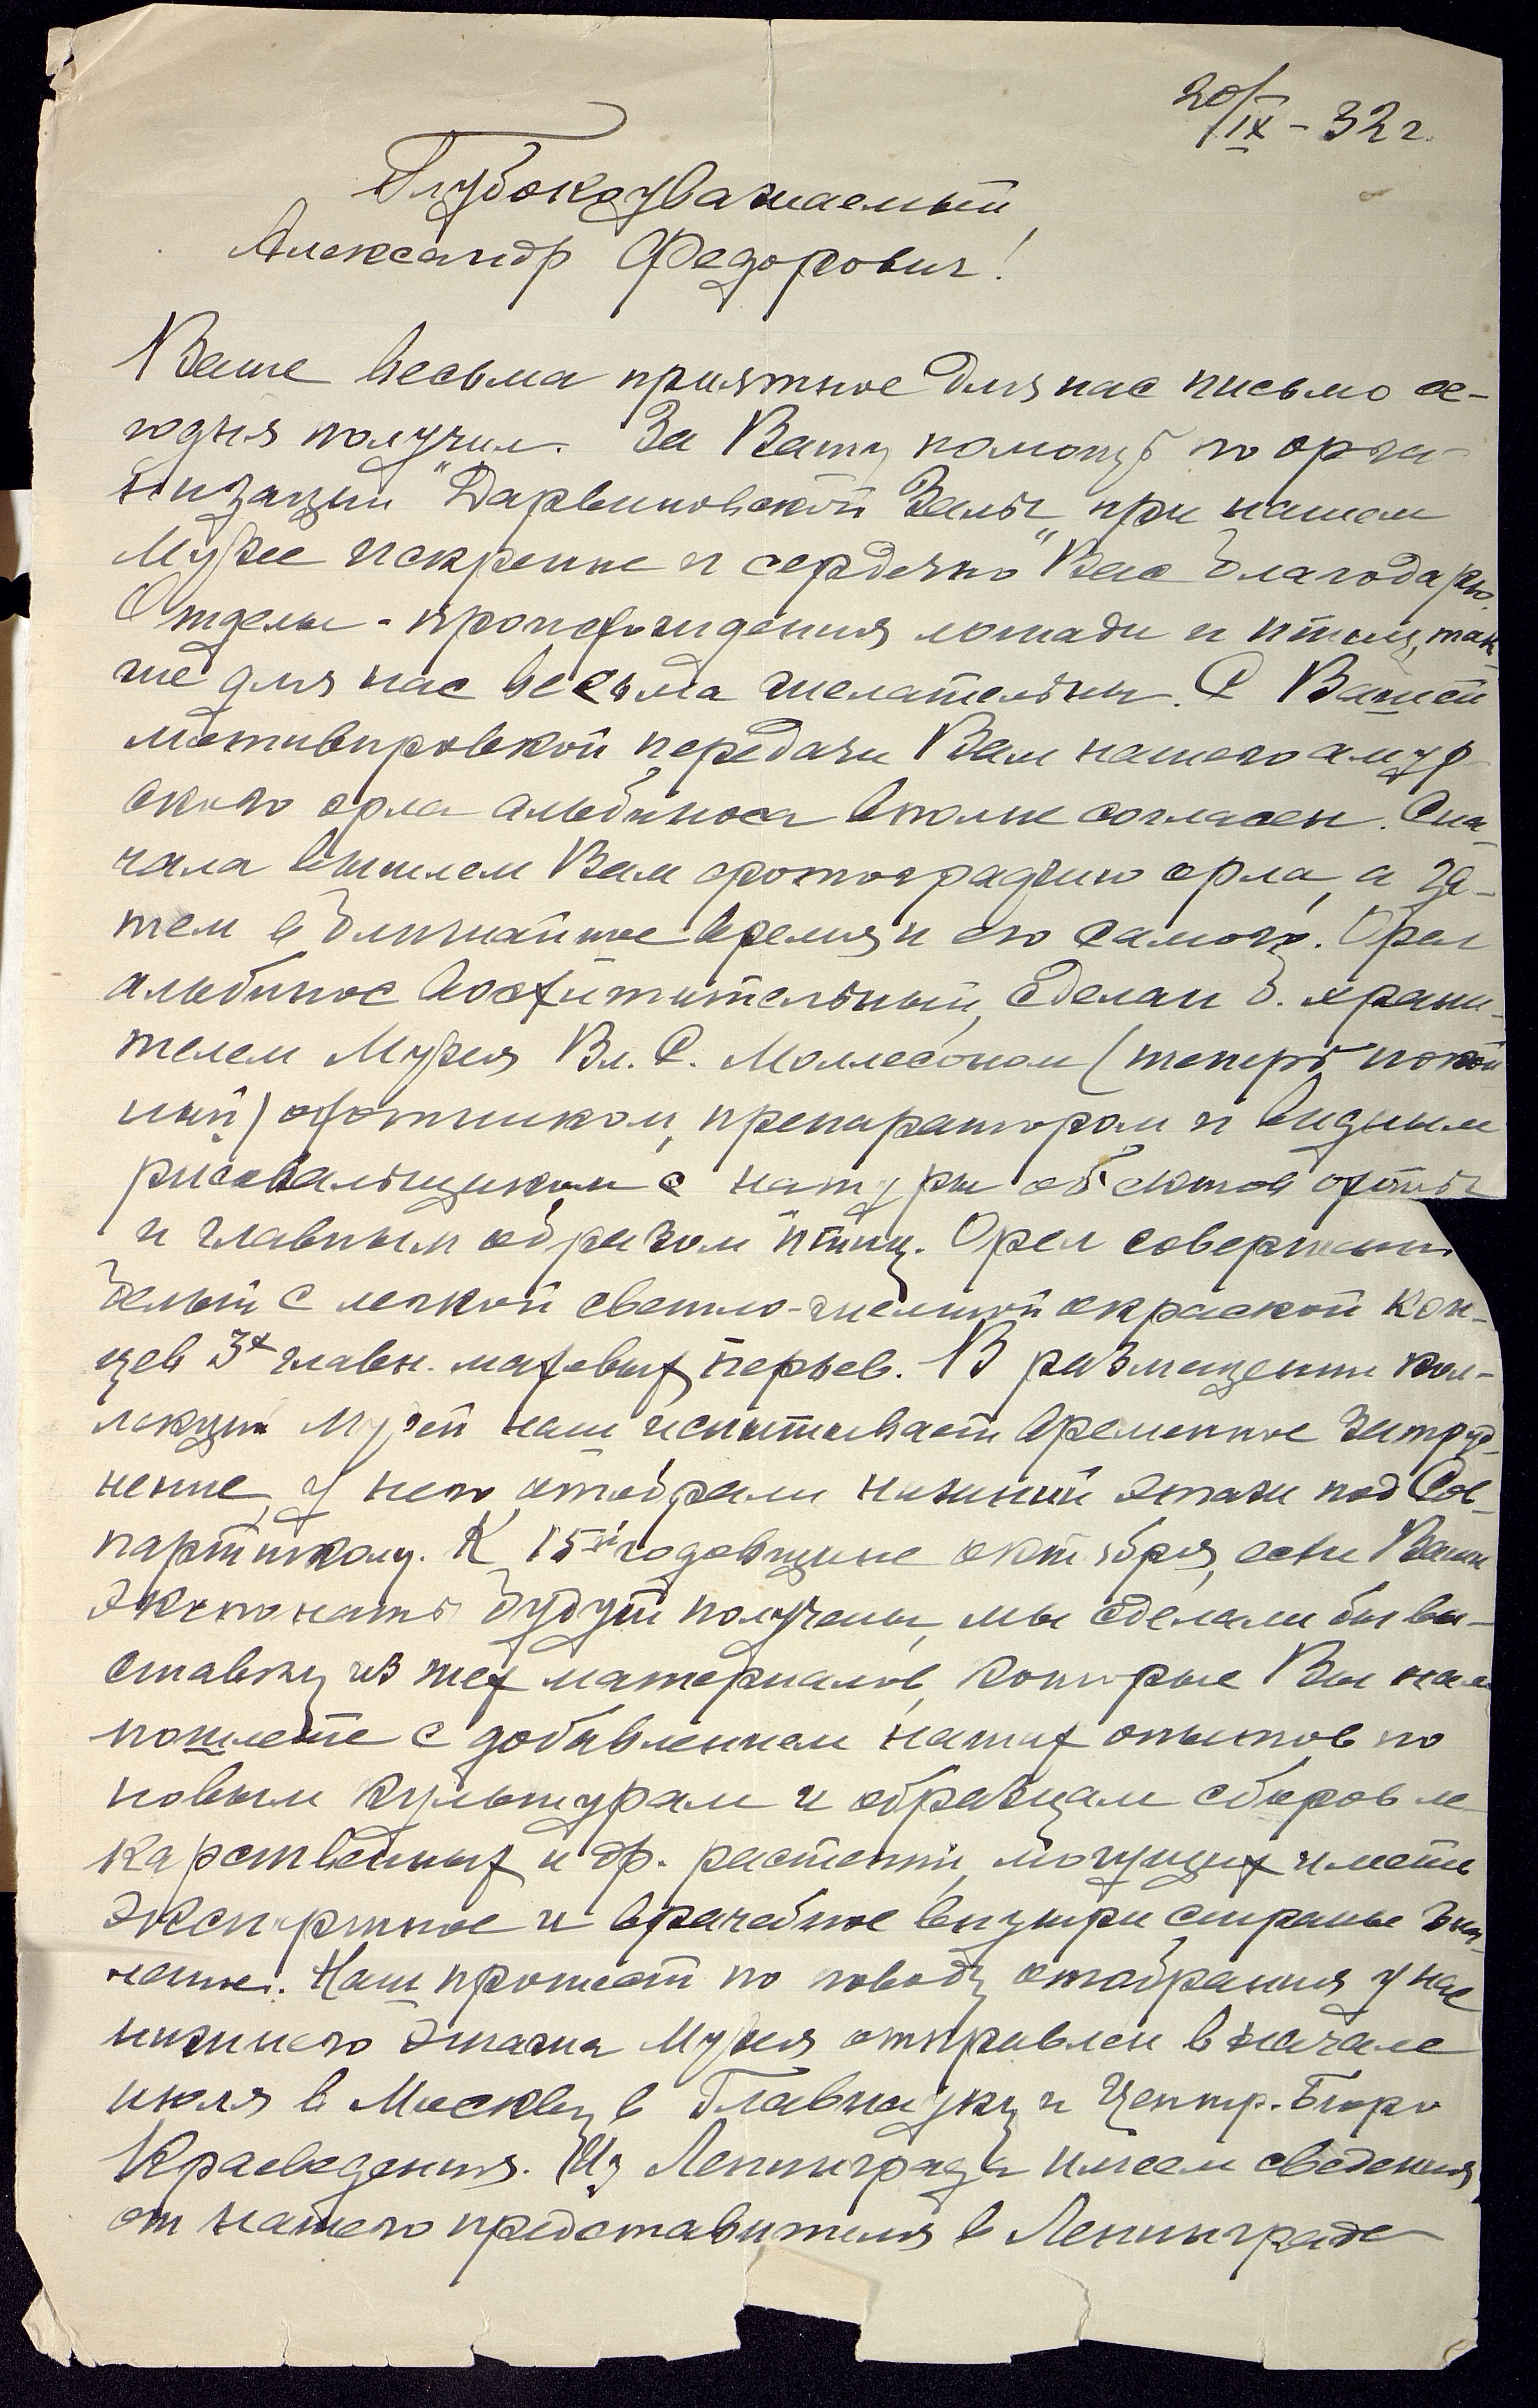 20/IX - 32 г.
Глубокоуважаемый
Александр Федорович!
Ваше весьма приятное для нас письмо се-
годня получил. За Вашу помощь по орга-
низации "Дарвиновской Залы" при нашем
Музее искренне и сердечно Вас благодарю.
Отделы - происхождения лошади и птиц, так-
же для нас весьма желательны. С Вашей
мотивировкой передачи Вам нашего амур-
ского орла альбиноса вполне согласен. Сна-
чала вышлем Вам фотографию орла, а за-
тем в ближайшее время и его самого. Орел
альбинос восхитительный, сделан б. храни-
телем Музея Вл. С. Моллесоном (теперь покой
ный) охотником, препаратором и видным
рисовальщиком с натуры объектов охоты
и главным образом птиц. Орел совершенно
белый с легкой светло-желтой окраской кон-
цев 3х главн. маховых перьев. В размещении кол-
лекций Музей наш испытывает временное затруд-
нение, у него отобрали нижний этаж под Сов-
партшколу. К 15й годовщине октября, если Ваши
экспонаты будут получены, мы сделали бы вы-
ставку из тех материалов, которые Вы нам
пошлете с добавлением наших опытов по
новым культурам и образцам сборов ле
карственных и др. растений, могущих иметь
экспортное и врачебное внутри страны зна-
чение. Наш протест по поводу отобрания у нас
нижнего этажа Музея отправлен в начале
июля в Москву в Главнауку и Центр. Бюро
Краеведения. Из Ленинграда имеем сведения
от нашего представителя в Ленинграде